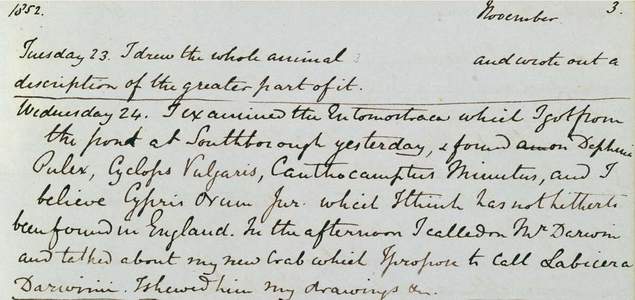 1852. November 3.
Tuesday 23. I drew the whole animal and wrote out a
description of the greater part of it.
Wednesday 24. I examined the Entomostraca which I got from
the pond at Southborough yesterday, & found Daphnia
Pulex, Cyclops Vulgaris, Canthocamptus Minutus, and I
believe Cypris Ovum Jur. which I think has not hitherto
been found in England. In the afternoon I called on Mr Darwin
and talked about my new Crab which I propose to call Labicera
Darwinii. I shewed him my drawings &c.